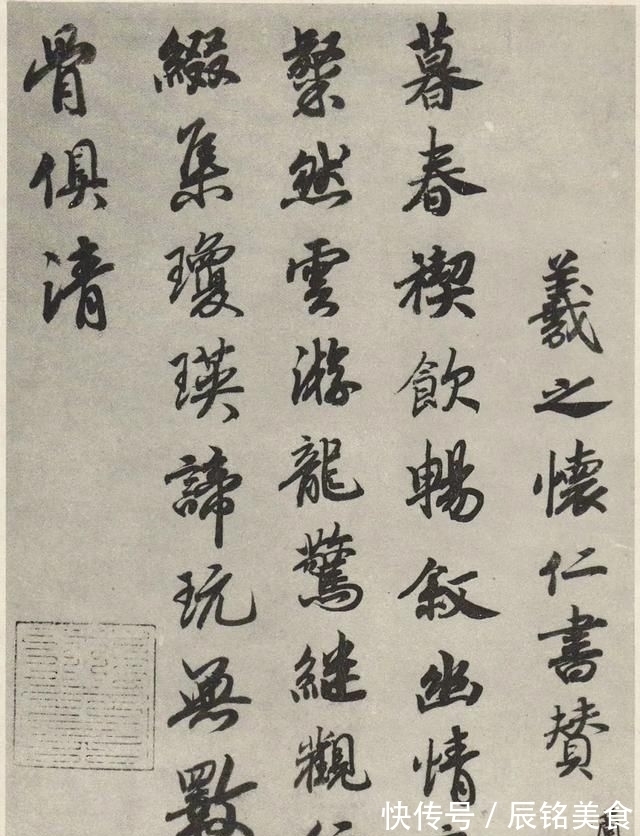 羲之懷仁書贊
暮春禊飲暢敘幽情
粲然雲游龍驚繼觀
綴集瓊瑛諦玩無數
骨俱清
快传号／辰铭美食